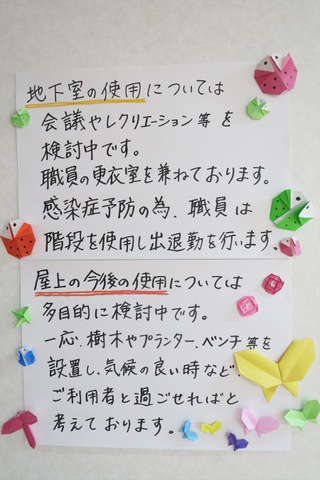 地下室の使用については
会議やレクリエーション等を
検討中です。
職員の更衣室を兼ねております。
感染症予防の為、職員は
階段を使用し出退勤を行います。
屋上の今後の使用については
多目的に検討中です。
一応、樹木やプランター、ベンチ等を
設置し、気候の良い時など
ご利用者と過ごせればと
考えております。